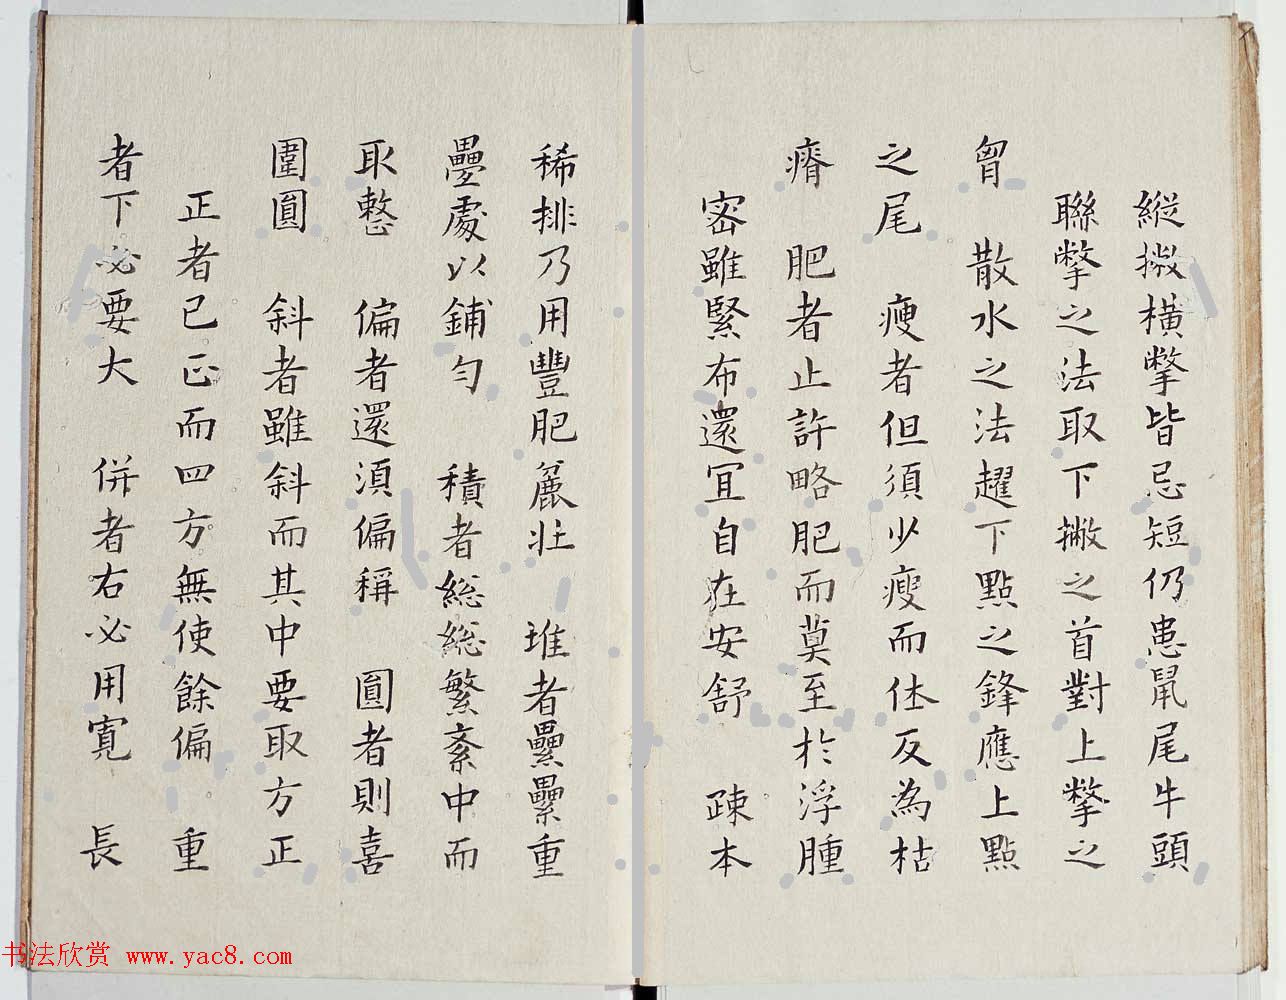 縱撇橫撆皆忌短仍患鼠尾牛頭
聯撆之法取下撇之首對上撆之
胷　散水之法趯下點之鋒應上點
之尾　瘦者但須少瘦而休反為枯
瘠　肥者止許略肥而莫至於浮腫
密雖緊布還冝自在安舒　疎本
稀排乃用豐肥麄壯　堆者纍纍重
疊處以鋪勻　積者総総繁紊中而
取整　偏者還湏偏稱　圓者則喜
圍圓　斜者雖斜而其中要取方正
正者已正而四方無使餘偏　重
者下必要大　併者右必用寬　長
书法欣赏 www.yac8.com